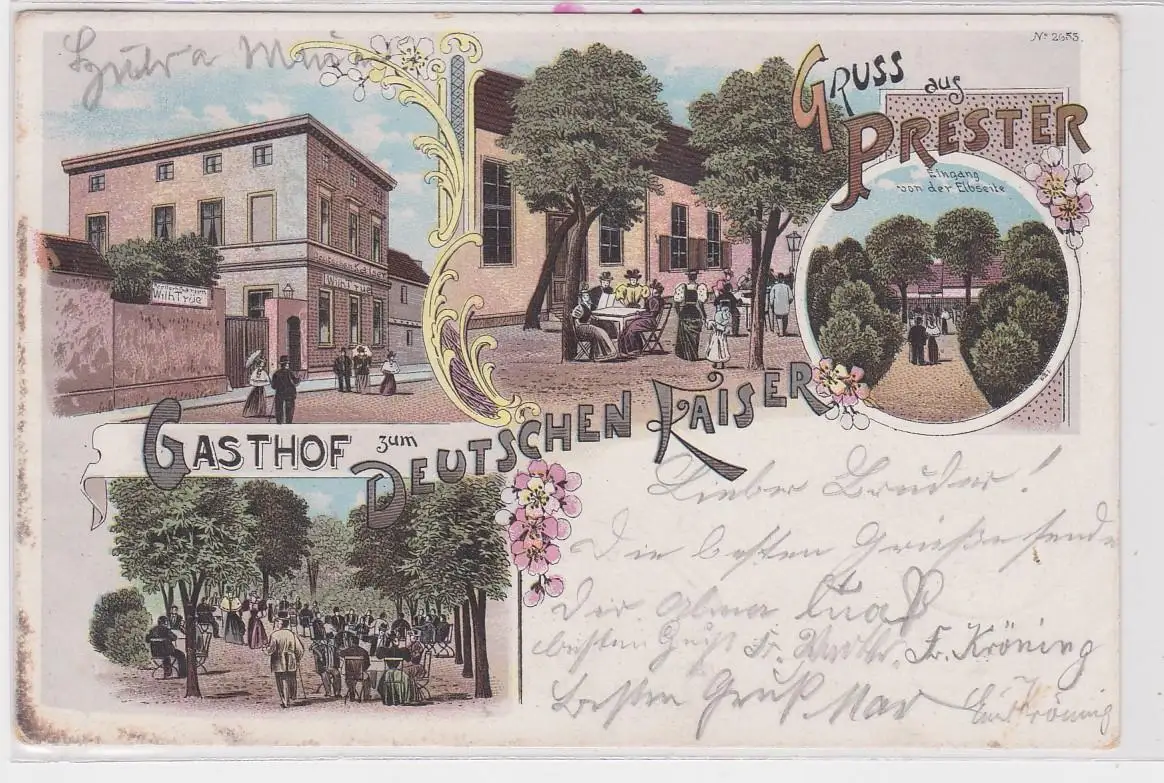 No 2653.
GRUSS aus
PRESTER
Eingang
von der Elbseite
Wilh Trüe
Wilh Trüe
GASTHOF zum
DEUTSCHEN KAISER
Lieber Bruder!
Die besten Grüße sendet
Dir Alma
besten Gruß Fr. Fr. Kröning
Besten Gruß Max
Kröning